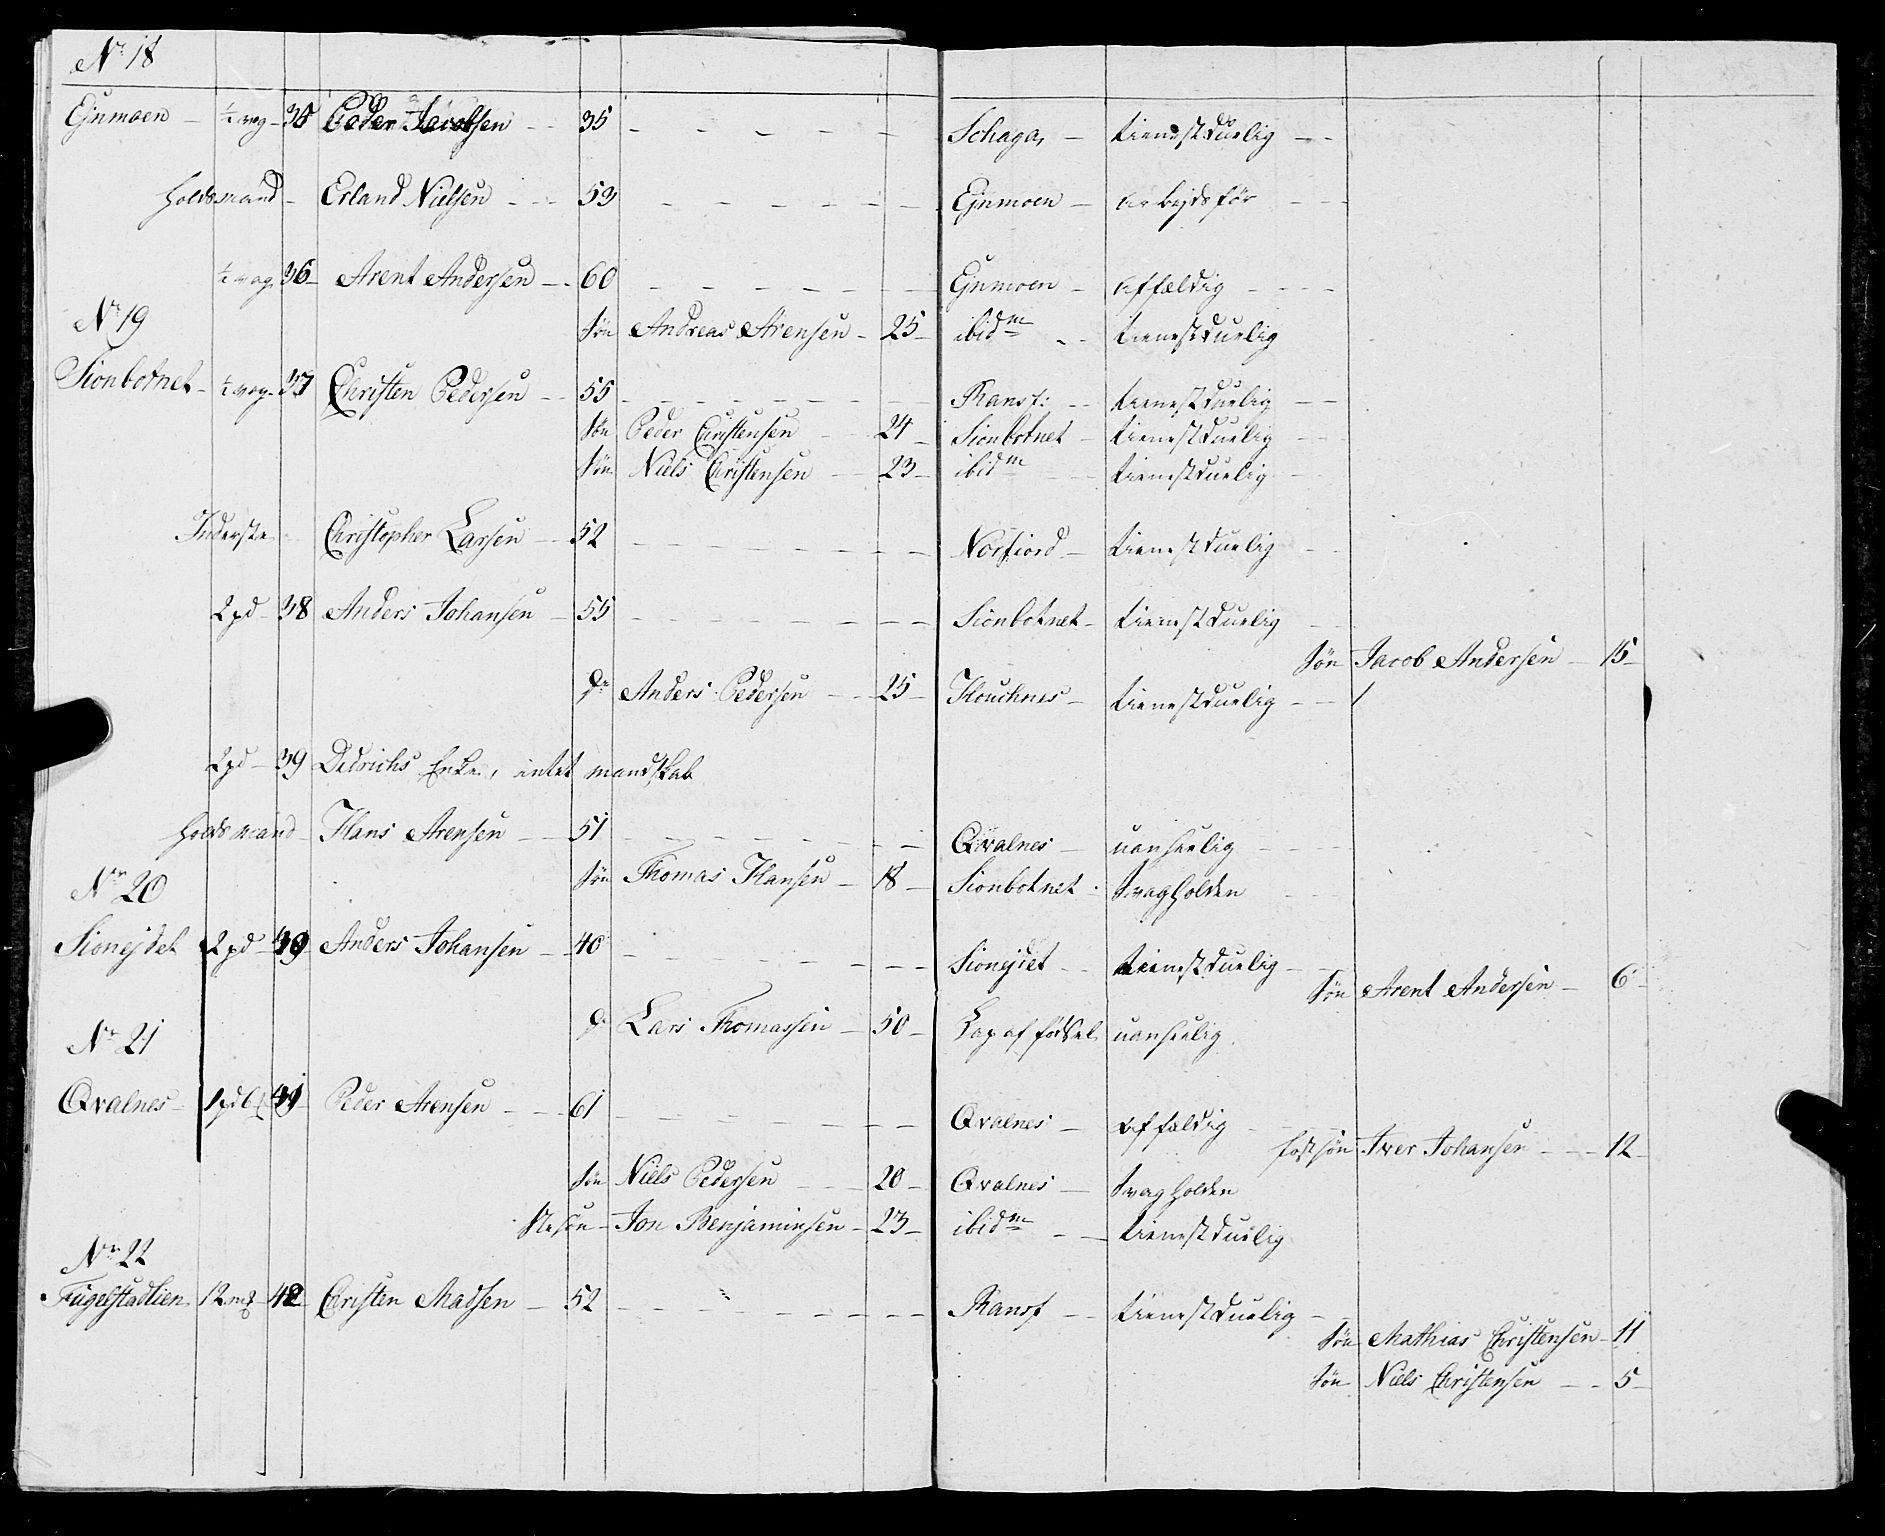 No 18
Ejnmoen - ½ vog - 35 Peder Jacobsen - - 35 - - - - - Schaga, - tienestduelig - -
Holdsmand - Erland Nielsen - - - 53 - - - - - - Ejnmoen - arbejdsfør - - -
½ vog 36 - Arent Andersen - - 60 - - - - - - Ejnmoen - affældig - - - -
No 19
Søn Andreas Arensen - 25 - ibidm - - tienestduelig
Sionbotnet - ½ vog - 37 Christen Pedersen - - 55 - - - - - - Ransf: - - tienestduelig - -
Søn Peder Christensen - - 24 - Sionbotnet - tienestduelig - -
Søn Niels Christensen - - 23 - ibidm - - tienestduelig -
Inderste - Christopher Larsen - - 52 - - - - - - - Norfiord - tienestduelig - -
2 pd - 38 Anders Johansen - 55 - - - - - - - Sionbotnet - tienestduelig -
Søn Jacob Andersen - 15 -
Do Anders Pedersen - - 25 - Houchnes - tienestduelig - - /
2 pd - 39 Didrichs Enke, intet mandskab
Holdsmand - Hans Arensen - - 51 - - - - - - Qvalnes - uanseelig - - - -
No 20
Søn Thomas Hansen - 18 - Sionbotnet - Svagholden - -
Sionejdet 2 pd - 40 Anders Johansen - - 40 - - - - - - Sionejdet - - tienestduelig - -
Søn Arent Andersen - 6 -
Do Lars Thomassen - 50 - Lap af fødsel uanseelig
No 21
Qvalnes - 1 pd 6 41 - Peder Arensen - - - 61 - - - - - - Qvalnes - affældig -
fostsøn Iver Johansen - - - 12 -
Søn Niels Pedersen - - - 20 - Qvalnes - Svagholden
Stesøn - Jon Benjaminsen - 23 - ibidm - - tienestduelig
No 22
Fugelstadlien 12 - 42 Christen Madsen - 52 - - - - - - - Ransf - - tienestduelig - -
Søn Mathias Christensen - 11
Søn Niels Christensen - - 5 -